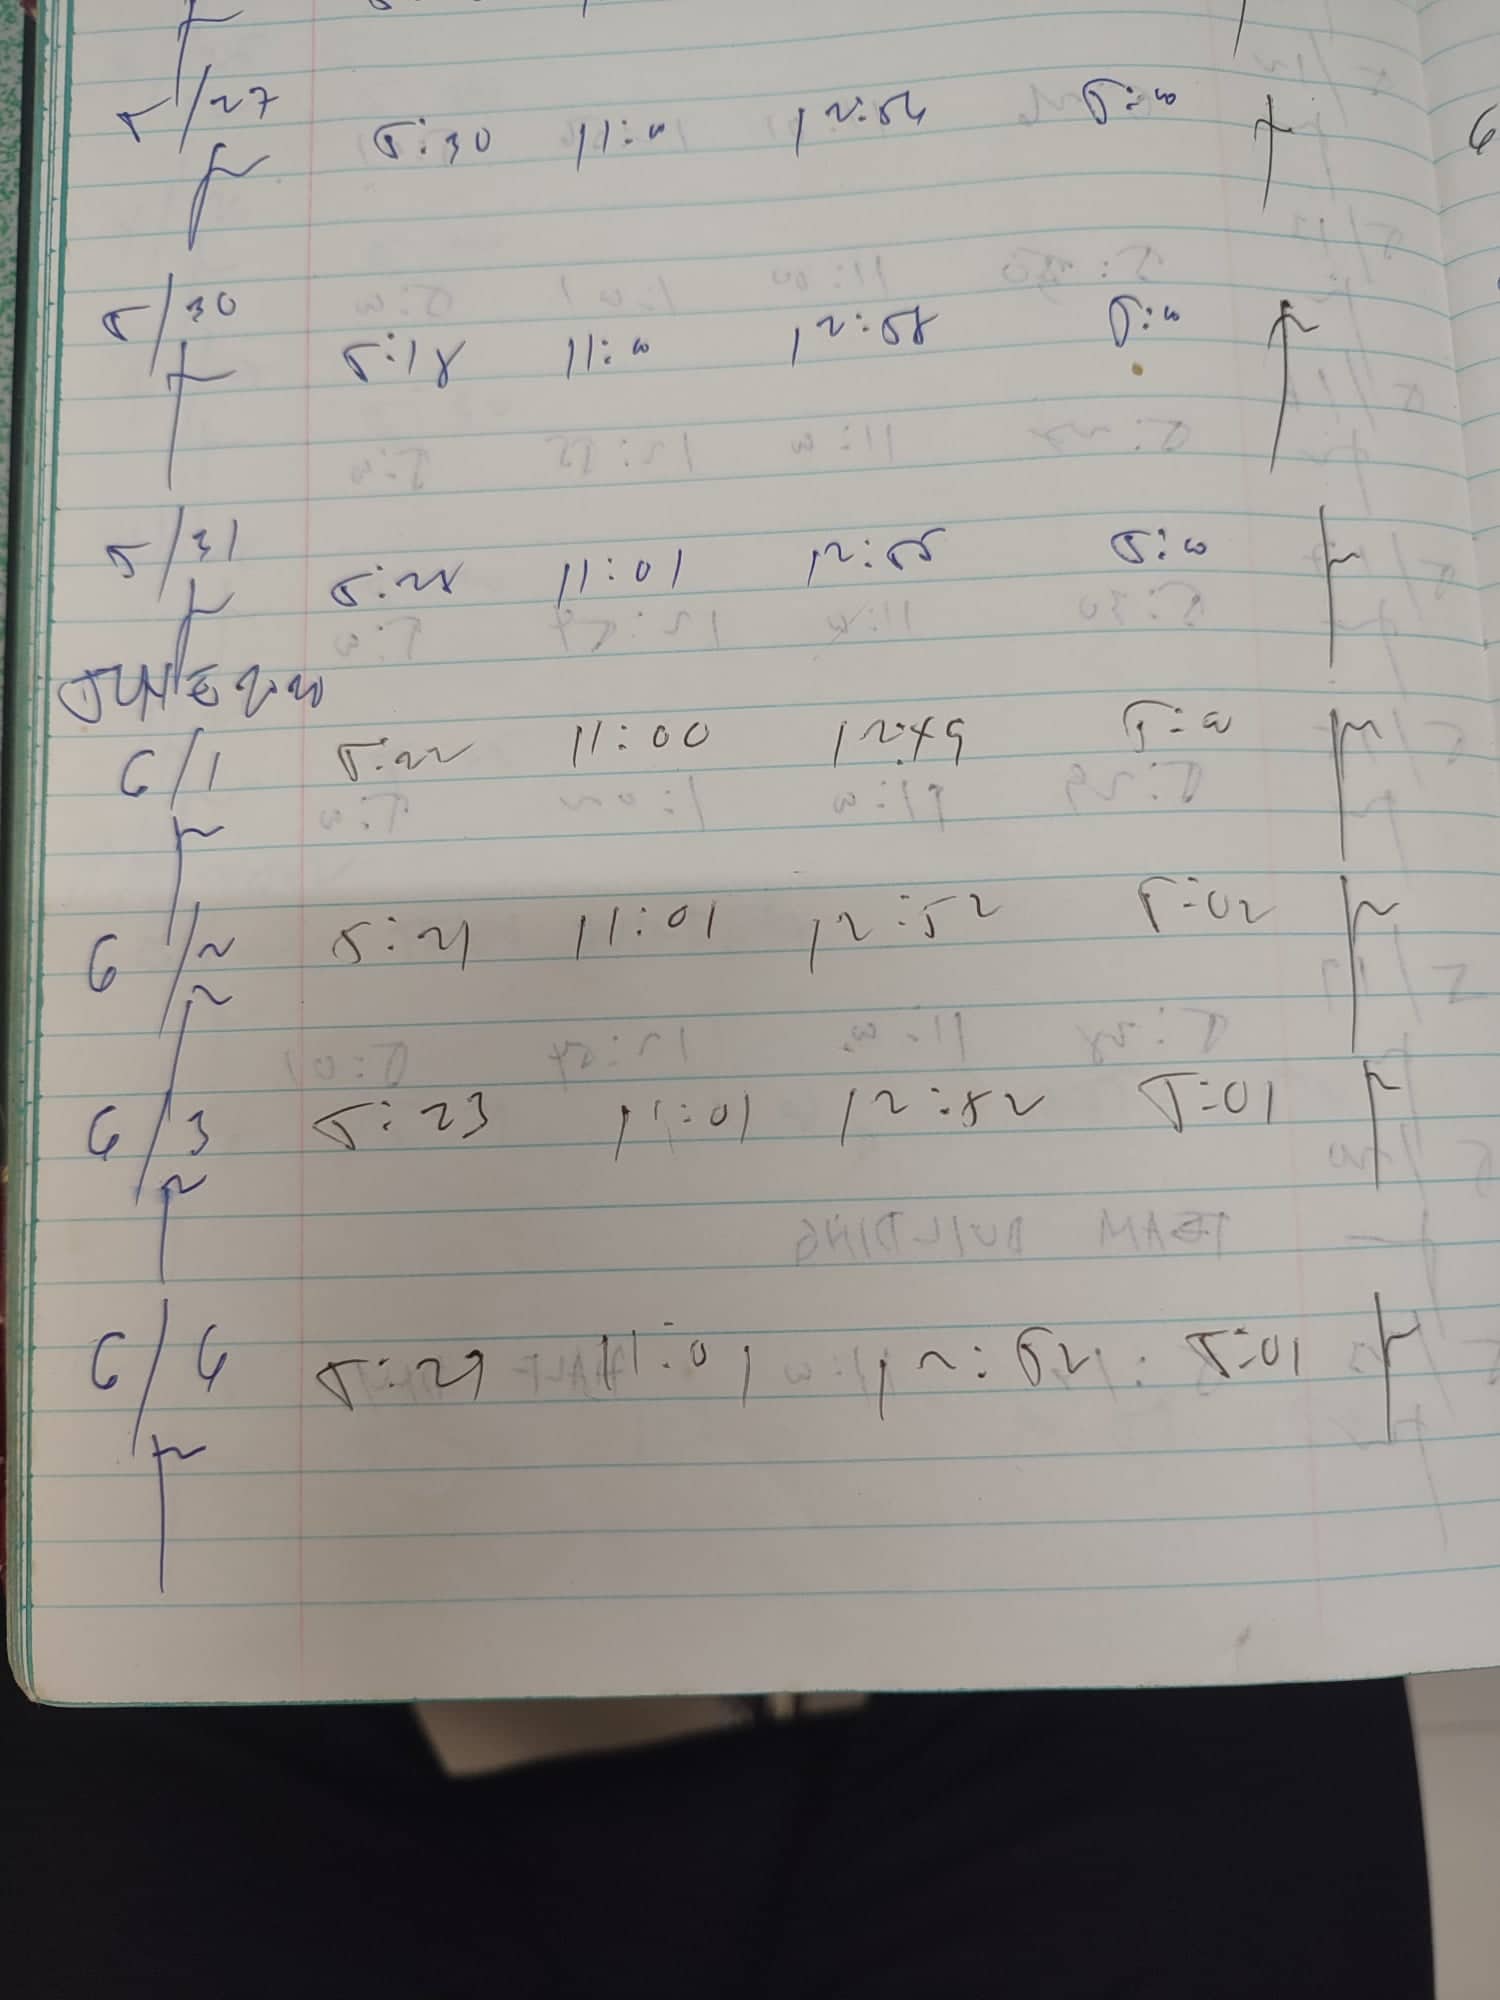 5/27 5:30 11:00 12:54 5:00
5/30 5:18 11:00 12:58 5:00
5/31 5:28 11:01 12:55 5:00
JUNE
6/1 5:22 11:00 12:49 5:00
6/2 5:21 11:01 12:52 5:02
6/3 5:23 11:01 12:52 5:01
6/4 11:01 12:52 5:01
TEAM BUILDING